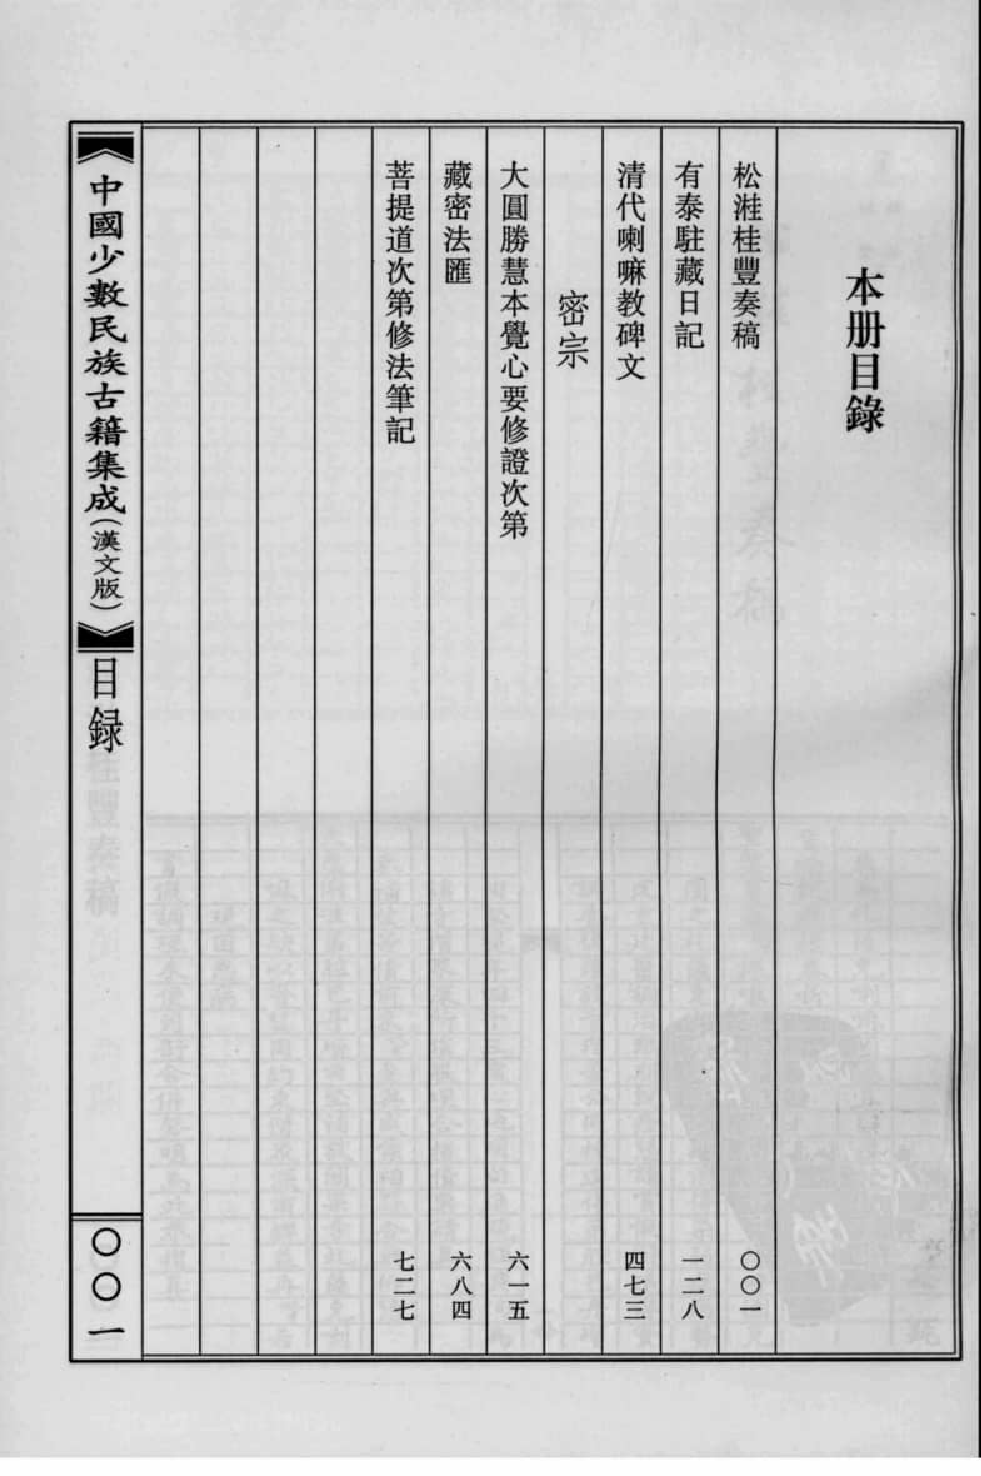 本册目錄
松溎桂豐奏稿 〇〇一
有泰駐藏日記 一二八
清代喇嘛教碑文 四七三
密宗
大圓勝慧本覺心要修證次第 六一五
藏密法匯 六八四
菩提道次第修法筆記 七二七
中國少數民族古籍集成(漢文版)
目録
〇〇一